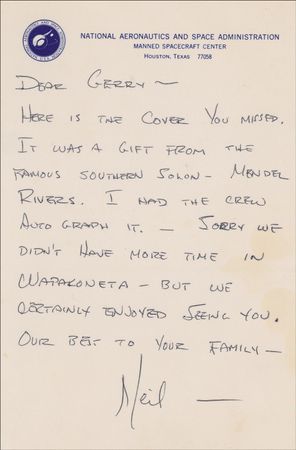 NATIONAL AERONAUTICS AND SPACE ADMINISTRATION
MANNED SPACECRAFT CENTER
HOUSTON, TEXAS 77058
DEAR GERRY —
HERE IS THE COVER YOU MISSED.
IT WAS A GIFT FROM THE
FAMOUS SOUTHERN SOLON - MENDEL
RIVERS. I HAD THE CREW
AUTOGRAPH IT. — SORRY WE
DIDN'T HAVE MORE TIME IN
WAPAKONETA — BUT WE
CERTAINLY ENJOYED SEEING YOU.
OUR BEST TO YOUR FAMILY —
Neil —